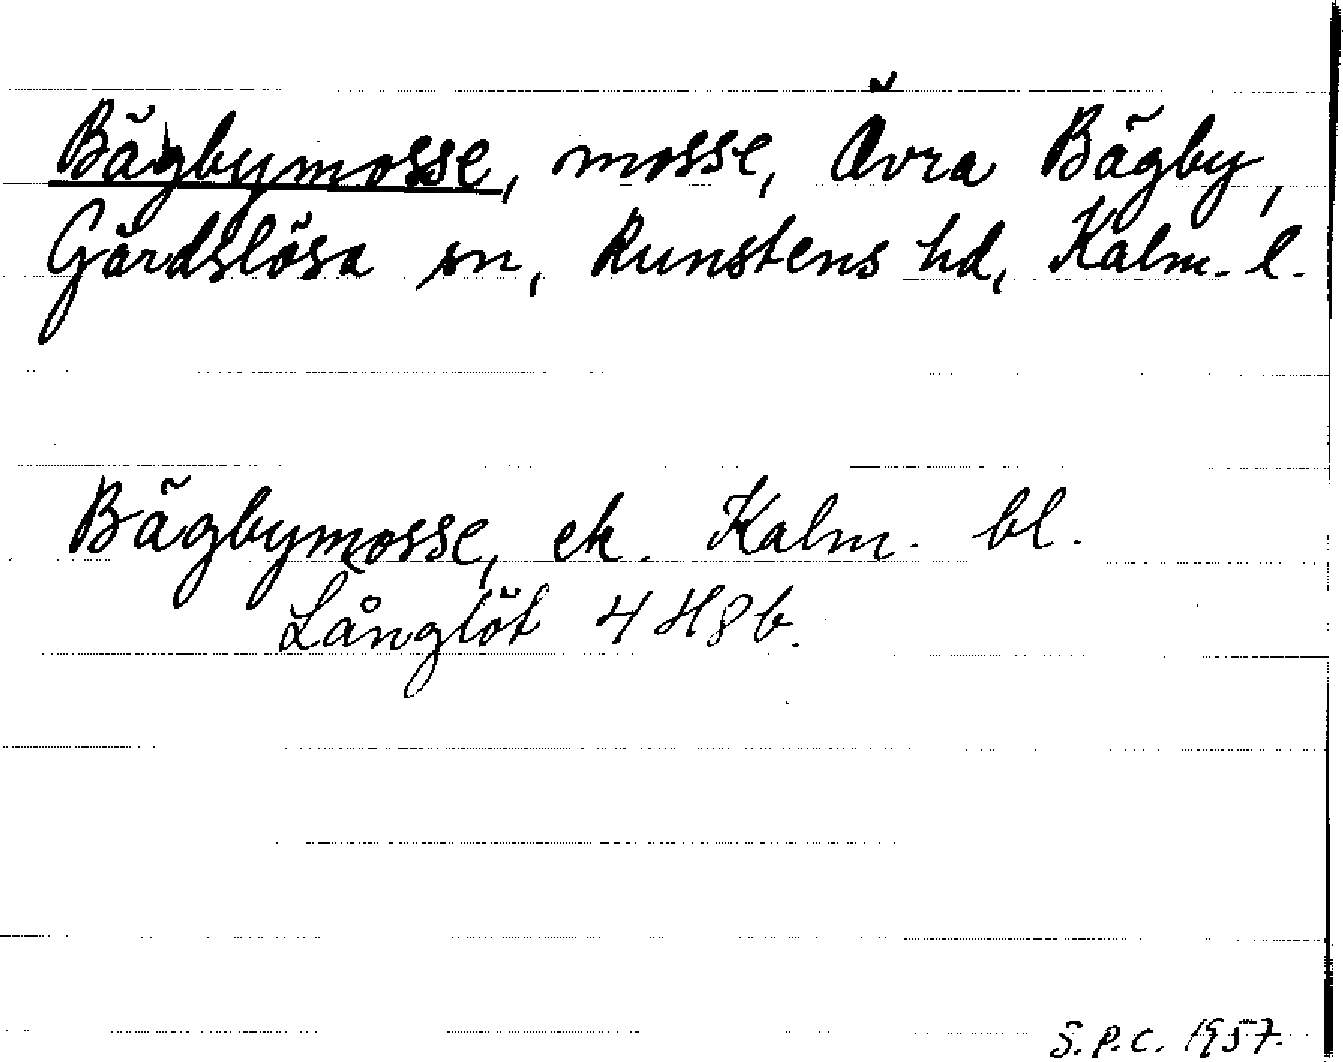 Bägbymosse, mosse, Övra Bägby,
Gärdslösa sn, Runstens hd, Kalm. l.
Bägbymosse, ek. Kalm. bl.
Långlöt 4 H 8 b.
S.P.C. 1957.